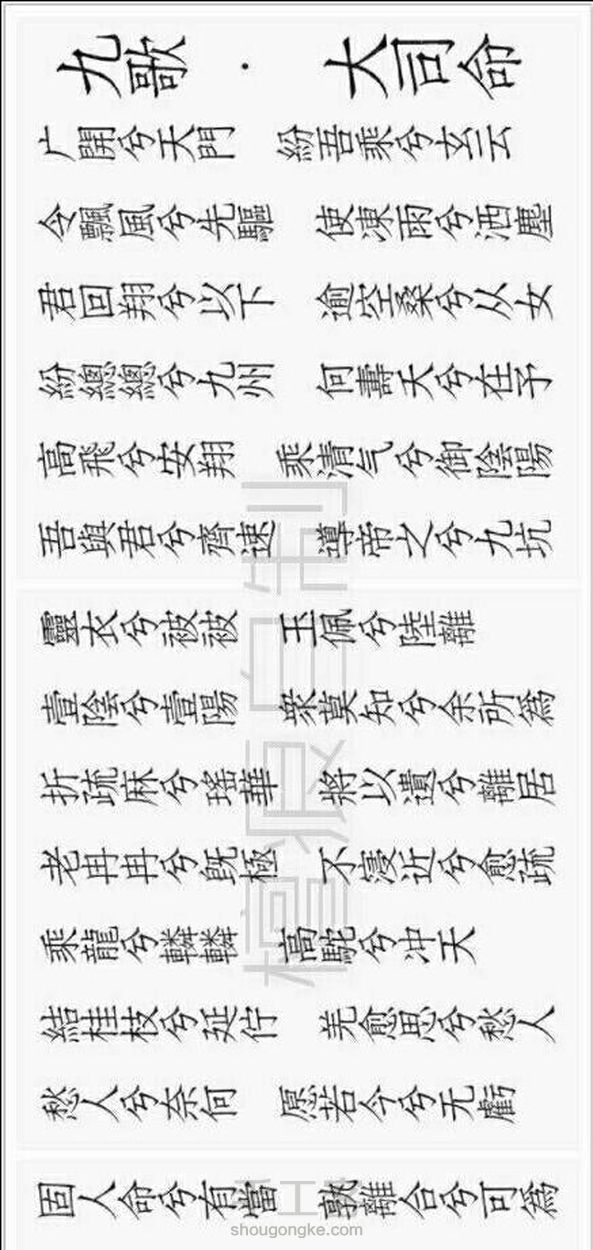 九歌 · 大司命
广開兮天門 紛吾乘兮玄云
令飄風兮先驅 使凍雨兮洒塵
君回翔兮以下 逾空桑兮从女
紛總總兮九州 何壽夭兮在予
高飛兮安翔 乘清气兮御陰陽
吾與君兮齊速 導帝之兮九坑
靈衣兮被被 玉佩兮陸離
壹陰兮壹陽 衆莫知兮余所為
折疏麻兮瑤華 將以遺兮離居
老冉冉兮既極 不寖近兮愈疏
乘龍兮轔轔 高駝兮冲天
結桂枝兮延佇 羌愈思兮愁人
愁人兮奈何 愿若今兮无虧
固人命兮有當 孰離合兮可為
shougongke.com